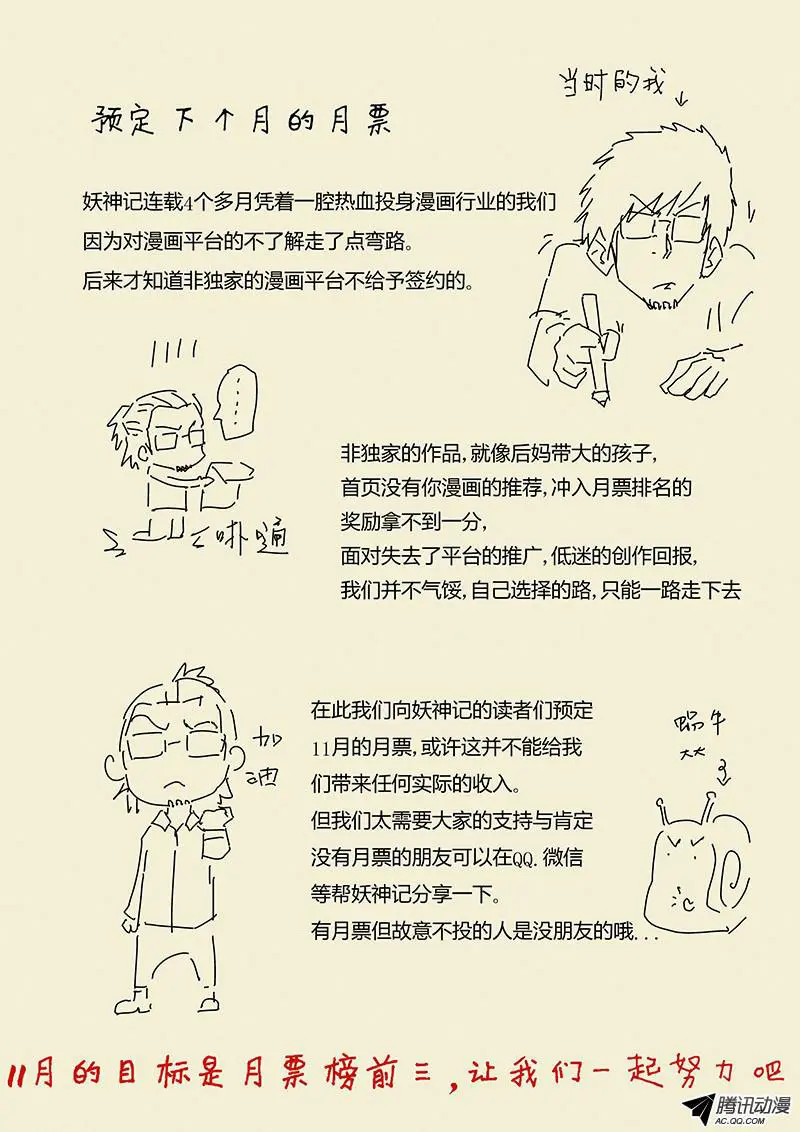 当时的我
预定下个月的月票
妖神记连载4个多月凭着一腔热血投身漫画行业的我们
因为对漫画平台的不了解走了点弯路。
后来才知道非独家的漫画平台不给予签约的。
......
非独家的作品,就像后妈带大的孩子,
首页没有你漫画的推荐,冲入月票排名的
奖励拿不到一分,
面对失去了平台的推广,低迷的创作回报,
我们并不气馁,自己选择的路,只能一路走下去
在此我们向妖神记的读者们预定
11月的月票,或许这并不能给我
们带来任何实际的收入。
但我们太需要大家的支持与肯定
没有月票的朋友可以在QQ.微信
等帮妖神记分享一下。
有月票但故意不投的人是没朋友的哦...
加
油
蜗牛
大大
11月的目标是月票榜前三,让我们一起努力吧
腾讯动漫
AC.QQ.COM